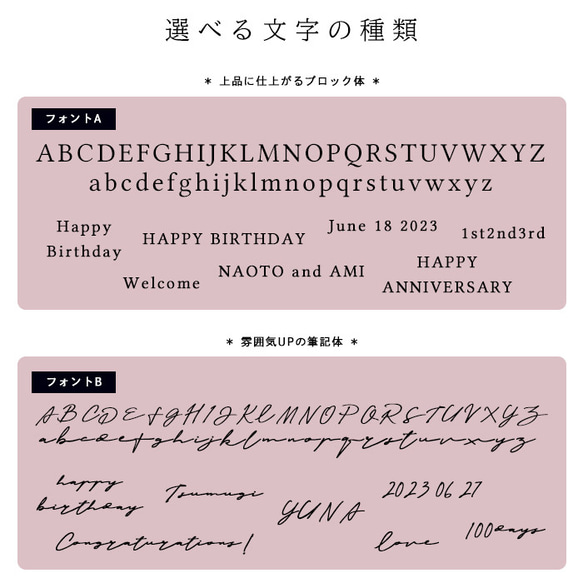 選べる文字の種類
* 上品に仕上がるブロック体 *
フォントA
ABCDEFGHIJKLMNOPQRSTUVWXYZ
abcdefghijklmnopqrstuvwxyz
Happy
Birthday
HAPPY BIRTHDAY
June 18 2023
1st2nd3rd
Welcome
NAOTO and AMI
HAPPY
ANNIVERSARY
* 雰囲気UPの筆記体 *
フォントB
ABCDEFGHIJKLMNOPQRSTUVXYZ
abcdefghijklmnopqrstuvwxyz
happy
birthday
Tsumugi
YUNA
2023 06 27
Congraturations!
love
100days